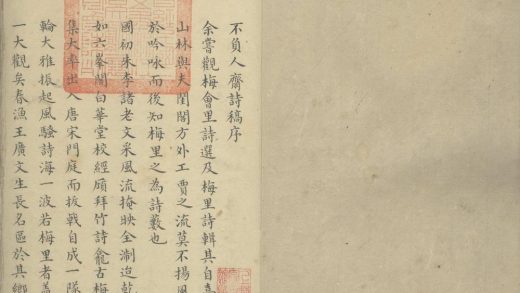 不負人齋詩稿序
余嘗觀梅會里詩選及梅里詩輯其自
山林與夫閨閤方外工賈之流莫不揚風
於吟咏而後知梅里之為詩藪也
國初朱李諸老文采風流掩映全淛迨乾
如六峯閣白華堂校經廎拜竹詩龕古梅
集大率出入唐宋門庭而拔戟自成一隊
輪大雅振起風騷詩海一波若梅里者蓋
一大觀矣春漁王廣文生長名區於其鄉